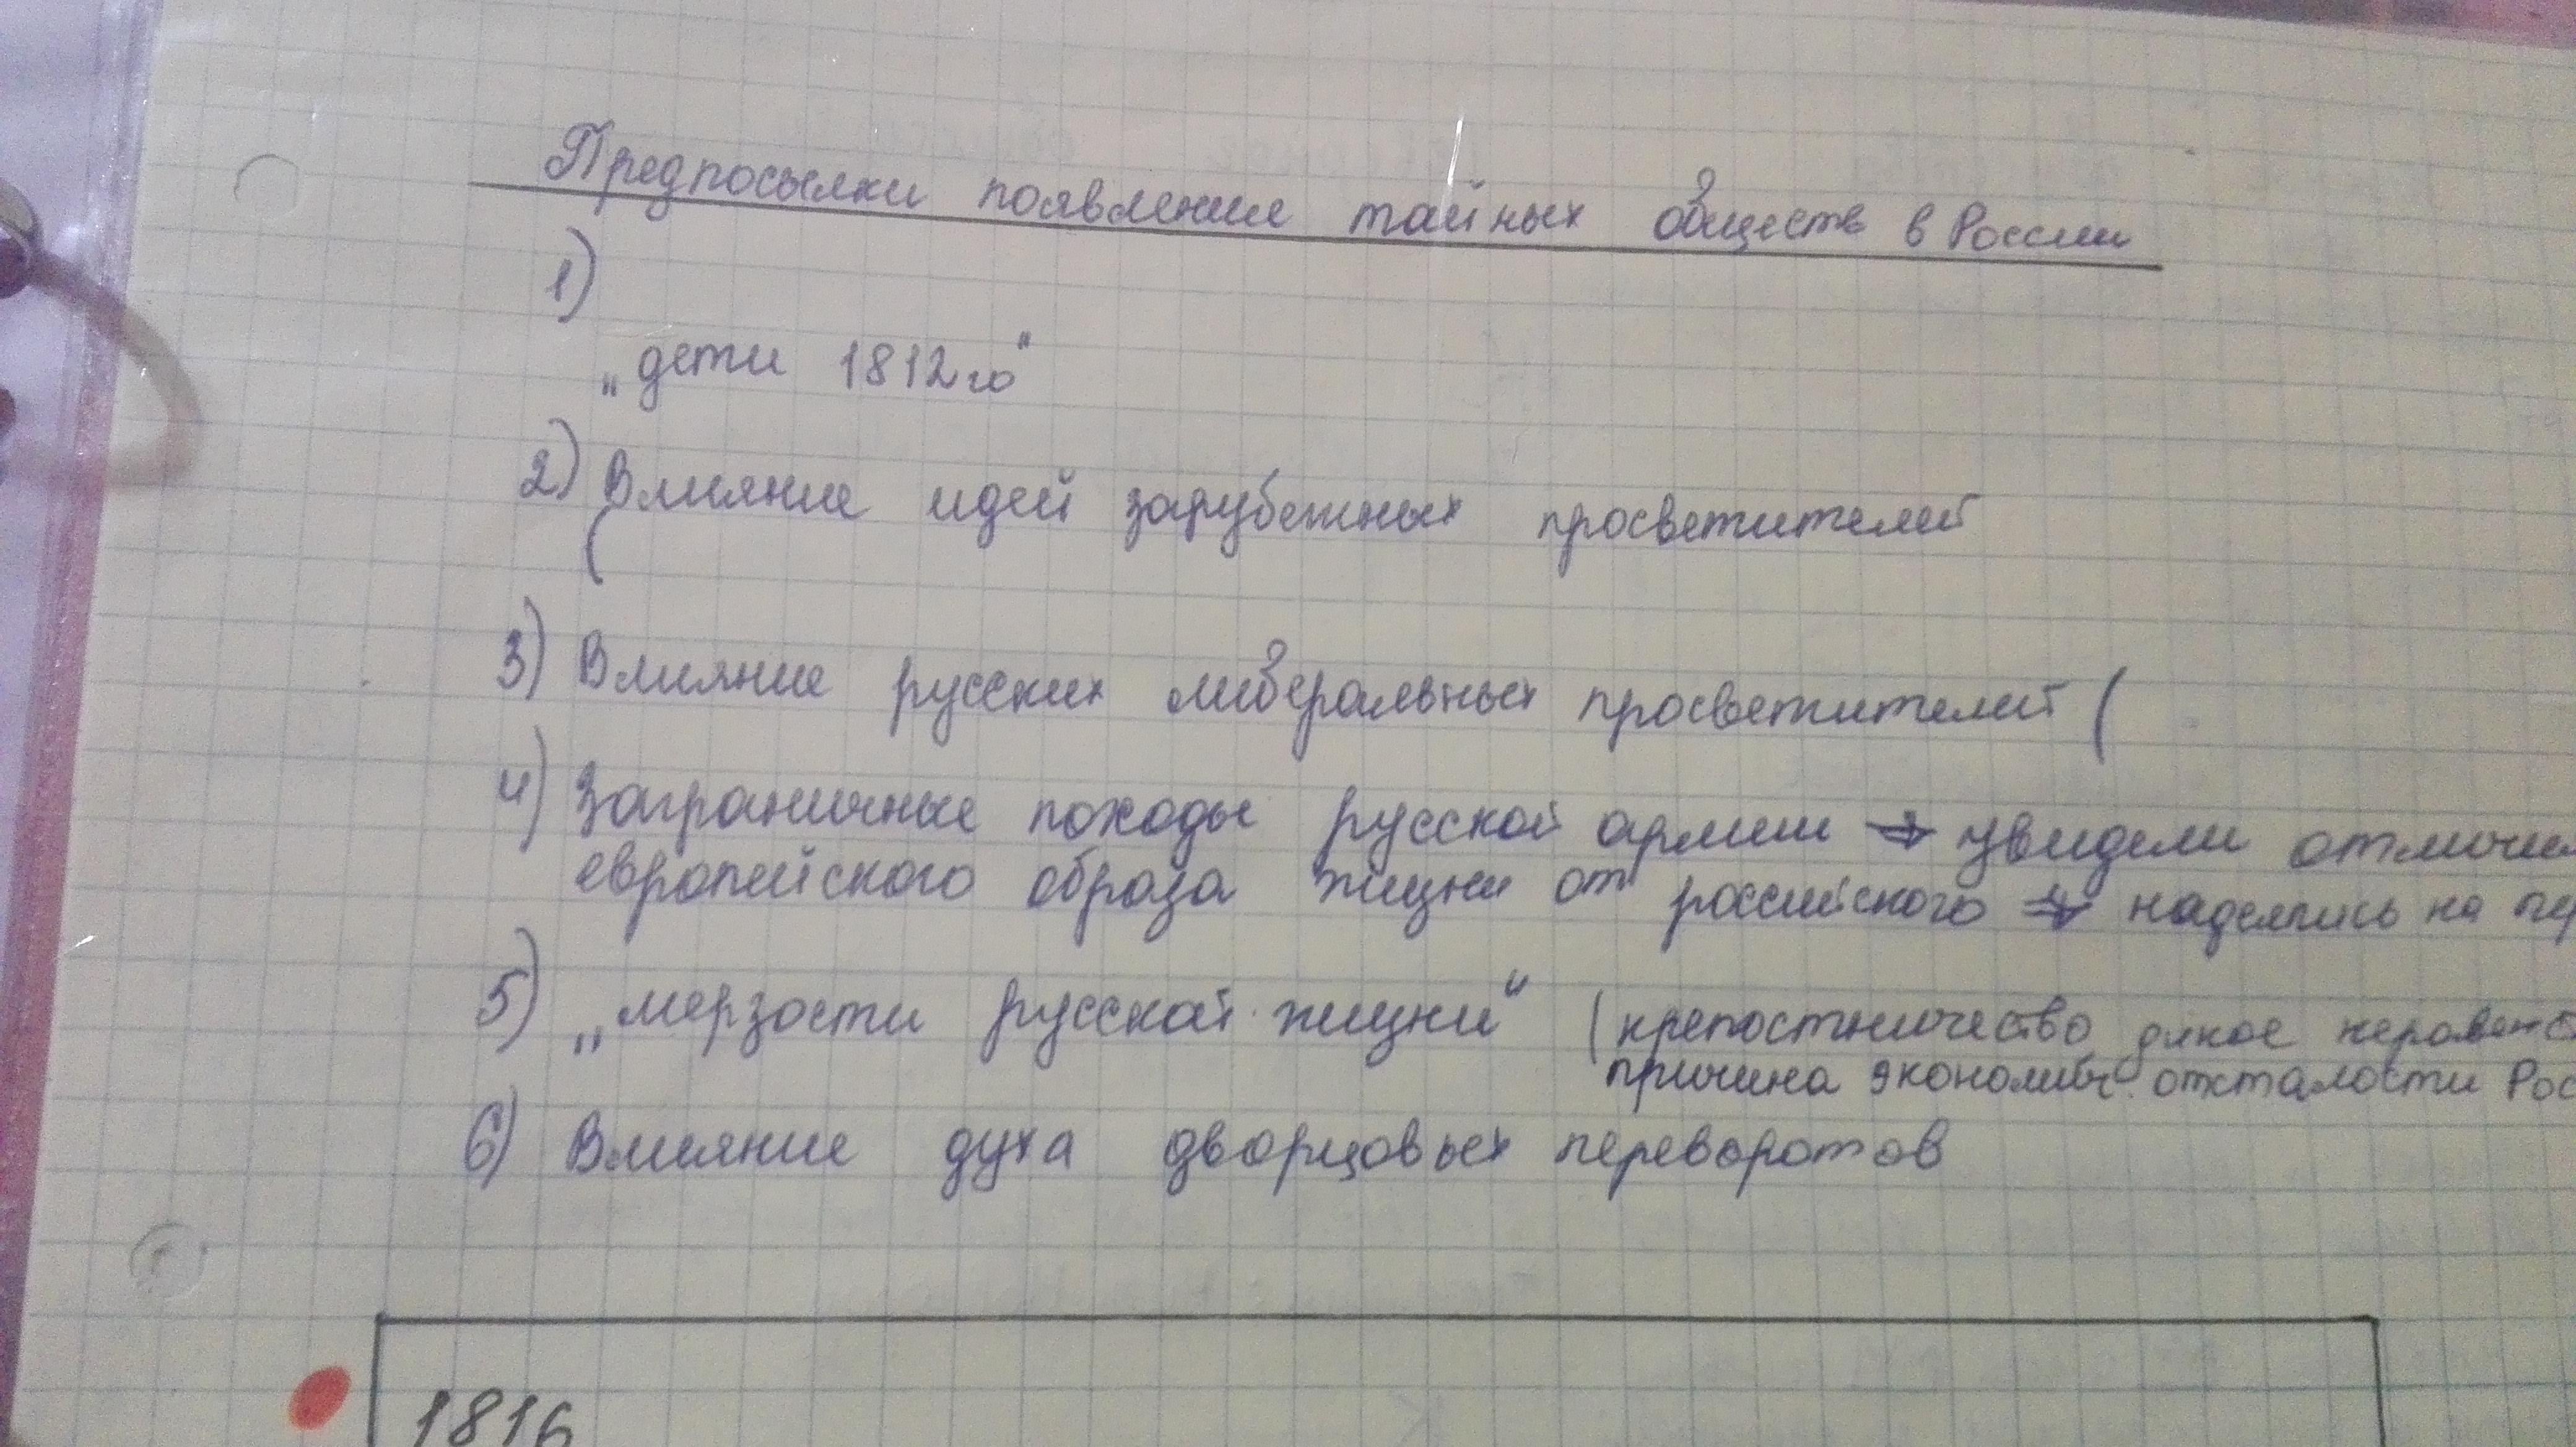 Предпосылки появления тайных обществ в России
1)
„дети 1812го“
2) Влияние идей зарубежных просветителей
(
3) Влияние русских либеральных просветителей (
4) Заграничные походы русской армии ⇒ увидели отличи
европейского образа жизни от российского ⇒ надеялись на пер
5) „мерзости русской жизни“ (крепостничество дикое неравенст
причина экономич. отсталости Рос
6) Влияние духа дворцовых переворотов
1816